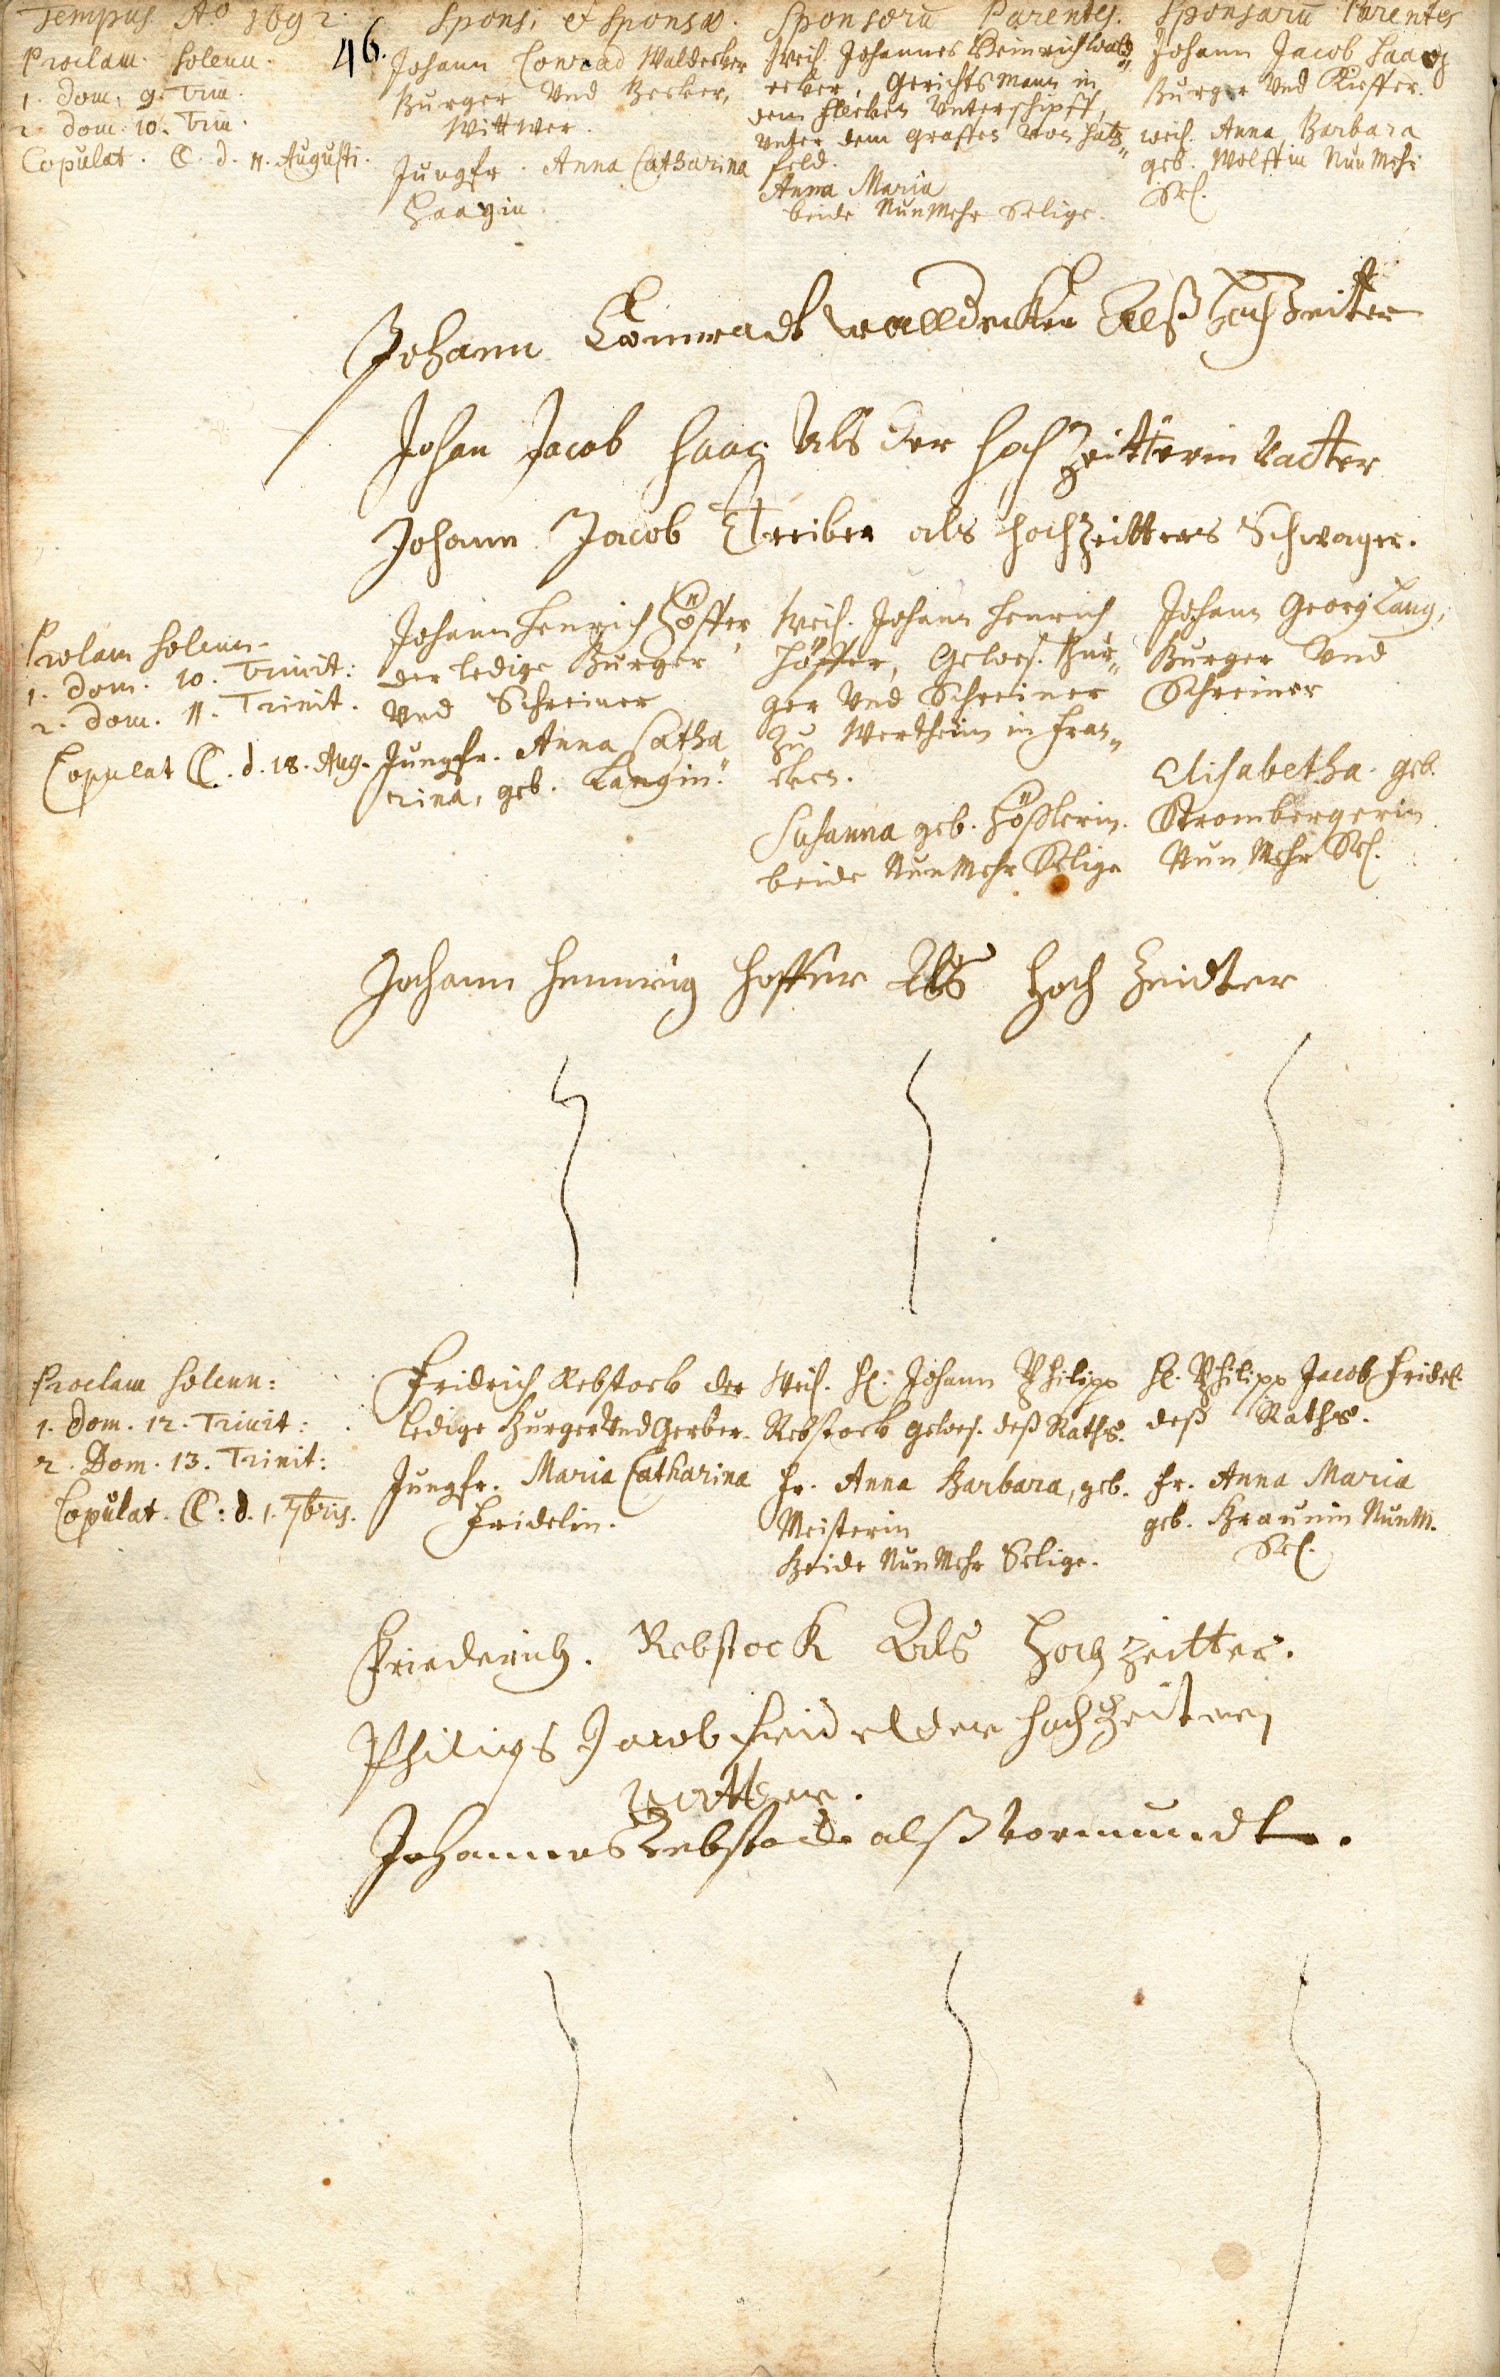 Tempus Ao 1692.
Sponsi et Sponsae.
Sponsorū Parentes.
Sponsarū Parentes
46.
Proclam. solenn.
1. Dom. 9. Trin.
2. Dom. 10. Trin.
Copulat. C. d. 11. Augusti.
Johann Conrad Waldecker
Burger Und Becker,
Wittwer.
Jungfr. Anna Catharina
Haagin
Weil. Johannes Heinrich Wald„
ecker, Gerichts Mann in
dem Flecken Unterschipff,
Unter dem Graffen Von Hatz„
feld.
Anna Maria
beide NunMehr Selige.
Johann Jacob Haag
Burger Und Kieffer.
weil. Anna Barbara
geb. Wolffin NunMehr
Sel.
Johann Connradt walldecker Alß Hochzeitter
Johan Jacob Haag Als der Hochzeitterin Vatter
Johann Jacob Treiber als Hochzeitters Schwager.
Prolam solenn.
1. Dom. 10. Trinit:
2. Dom. 11. Trinit.
Copulat C. d. 18. Aug.
Johann Henrich Höffer,
der ledige Burger
Und Schreiner
Jungfr. Anna Catha
rina, geb. Langin.
Weil. Johann Henrich
Höffer, Gewes. Bur„
ger Und Schreiner
Zu Wertheim in Fran„
cken.
Susanna geb. Hößlerin.
beide NunMehr Selige
Johann Georg Lang,
Burger Und
Schreiner
Elisabetha geb.
Strombergerin
Nun Mehr Sel.
Johann Hennrig Hoffer Als Hoch Zeidter
Proclam solenn:
1. Dom. 12. Trinit:
2. Dom. 13. Trinit:
Copulat. C: d. 1. 7bris.
Fridrich Rebstock der
ledige Burger Und Gerber.
Jungfr. Maria Catharina
Fridelin.
Weil. H: Johann Philipp
Rebstock gewes. deß Raths.
Fr. Anna Barbara, geb.
Meisterin
Beide NunMehr Selige.
H. Philipp Jacob Fridel
deß Raths.
Fr. Anna Maria
geb. Braunin NunM.
Sel.
Friederich. Rebstock Als Hochzeitter.
Philips Jacob Fridel der Hochzeiteren
Vatter.
Johannes Rebstock alß Vormundt.